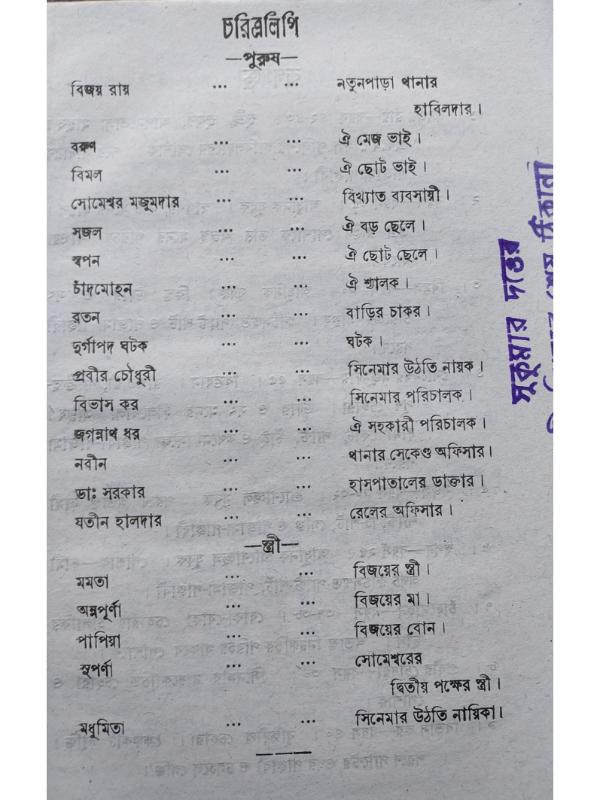 চরিত্রলিপি
—পুরুষ—
বিজয় রায় ... ... নতুনপাড়া থানার
হাবিলদার।
বরুণ ... ... ঐ মেজ ভাই।
বিমল ... ... ঐ ছোট ভাই।
সোমেশ্বর মজুমদার ... ... বিখ্যাত ব্যবসায়ী।
সজল ... ... ঐ বড় ছেলে।
স্বপন ... ... ঐ ছোট ছেলে।
চাঁদমোহন ... ... ঐ শ্যালক।
রতন ... ... বাড়ির চাকর।
দুর্গাপদ ঘটক ... ... ঘটক।
প্রবীর চৌধুরী ... ... সিনেমার উঠতি নায়ক।
বিভাস কর ... ... সিনেমার পরিচালক।
জগন্নাথ ধর ... ... ঐ সহকারী পরিচালক।
নবীন ... ... থানার সেকেণ্ড অফিসার।
ডাঃ সরকার ... ... হাসপাতালের ডাক্তার।
যতীন হালদার ... ... রেলের অফিসার।
—স্ত্রী—
মমতা ... ... বিজয়ের স্ত্রী।
অন্নপূর্ণা ... ... বিজয়ের মা।
পাপিয়া ... ... বিজয়ের বোন।
সুপর্ণা ... ... সোমেশ্বরের
দ্বিতীয় পক্ষের স্ত্রী।
মধুমিতা ... ... সিনেমার উঠতি নায়িকা।
সুকুমার দত্তের